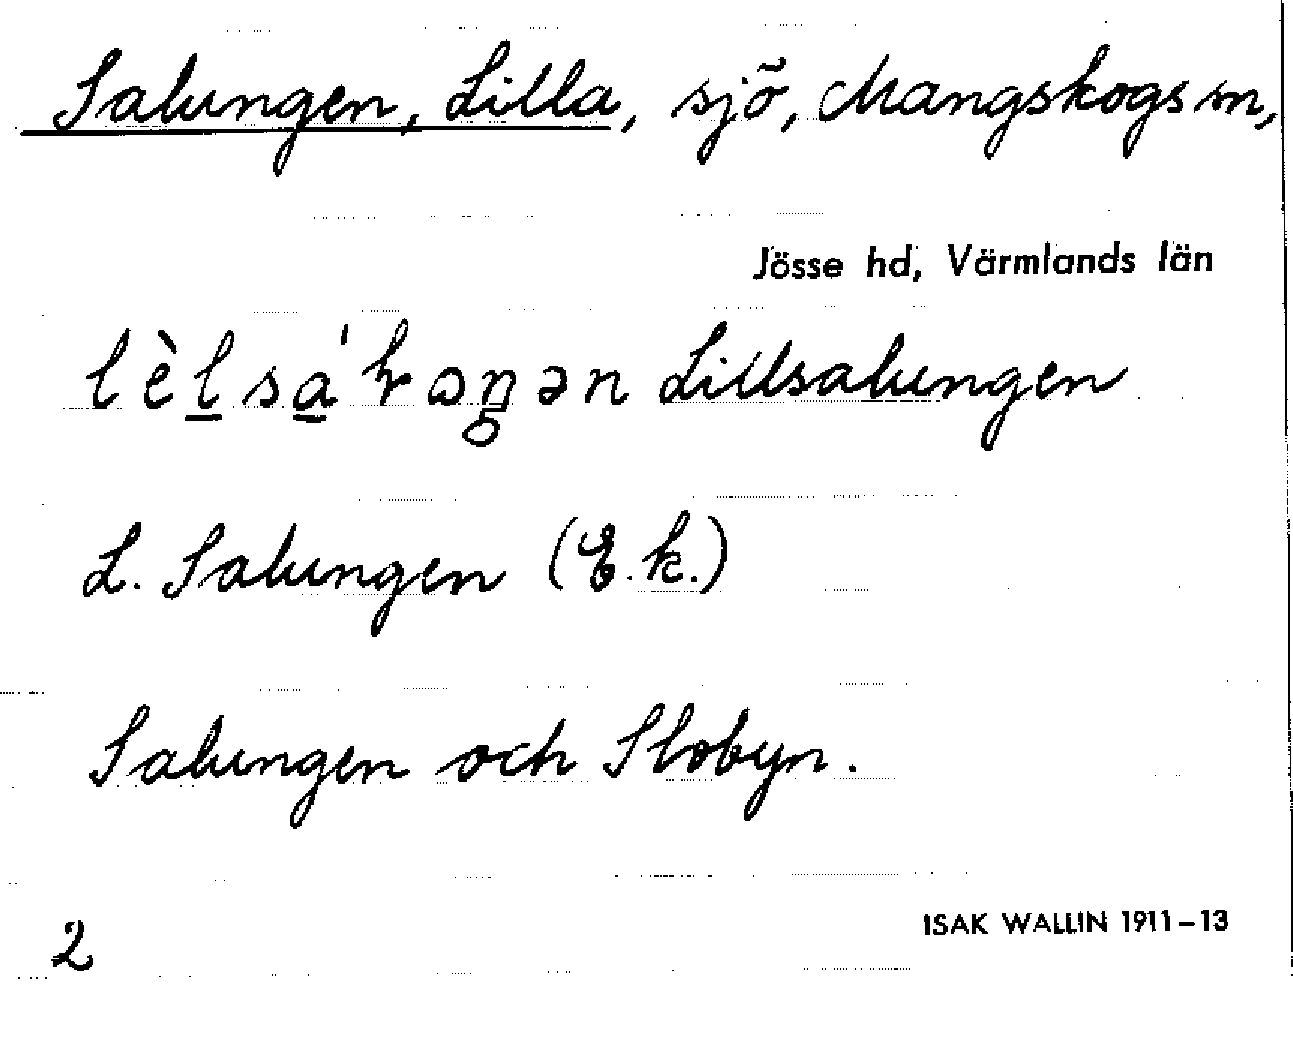 Salungen, Lilla, sjö, Mangskogs sn,
Jösse hd, Värmlands län
Lillsalungen
L. Salungen (E.k.)
Salungen och Slobyn.
2
ISAK WALLIN 1911–13